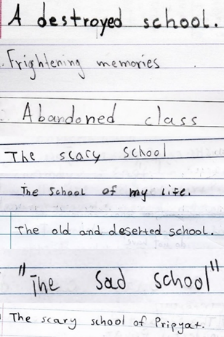 A destroyed school.
Frightening memories
Abandoned class
The scary school
The School of my life.
The old and deserted school.
"The Sad school"
The scary school of Pripyat.